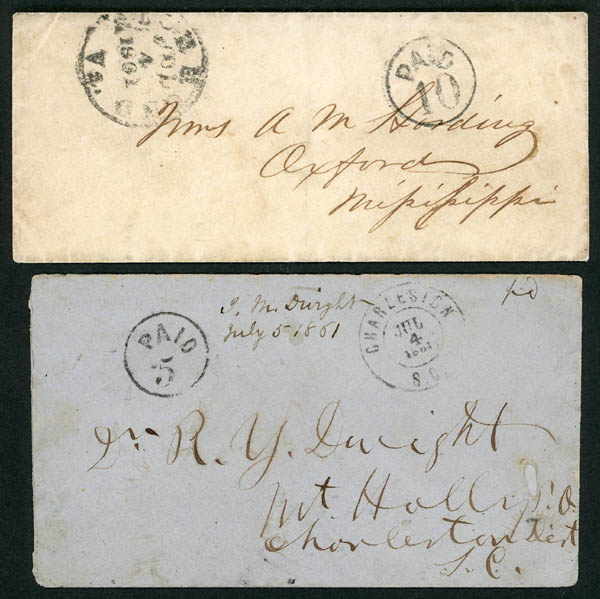 VA.
JUL
4
1861
PAID
10
Mrs A M Harding
Oxford
Mississippi
J. M. Dwight
July 5 1861
CHARLESTON
JUL
4
1861
S.C.
pd
PAID
5
Dr R. Y. Dwight
Mt Holly P. O.
Charleston Dist
S. C.